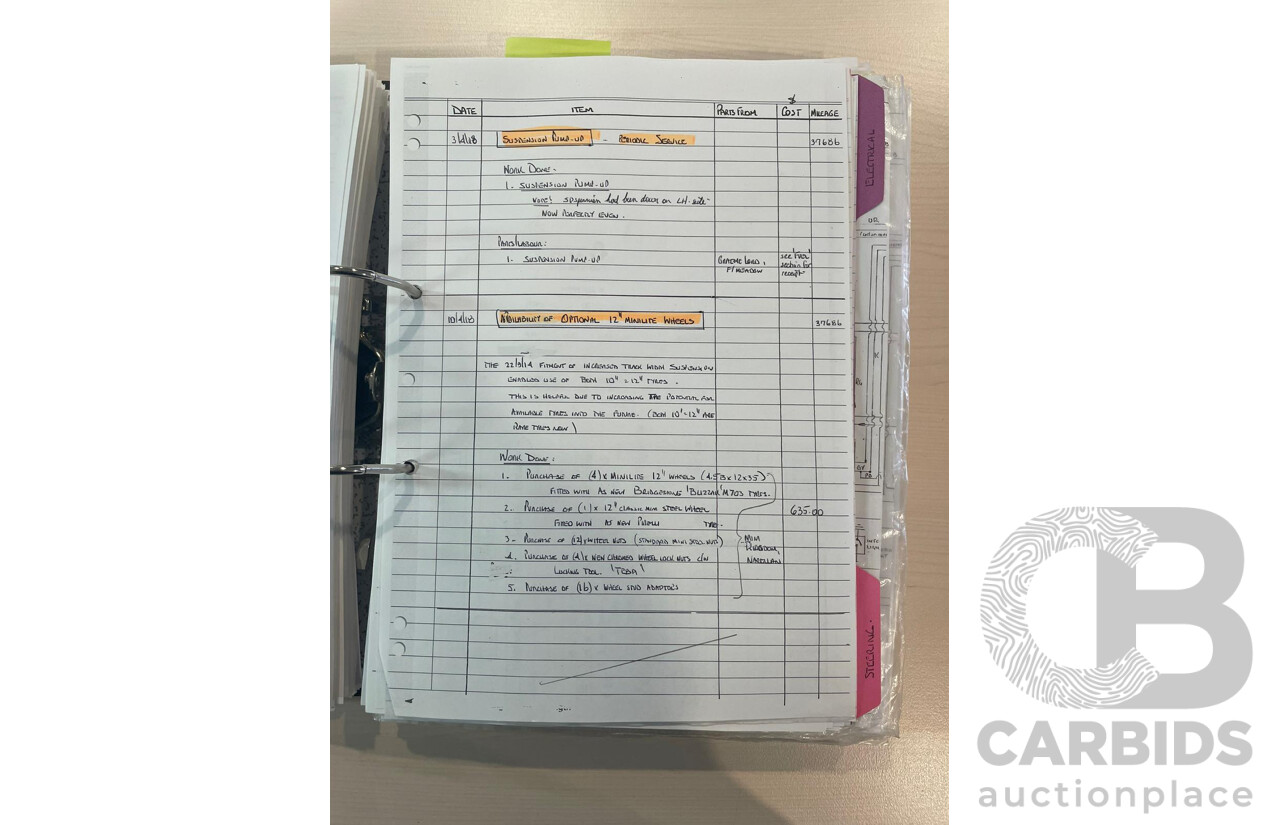 $
DATE ITEM PARTS FROM COST MILEAGE
3/4/18 SUSPENSION PUMP-UP - PERIODIC SERVICE 37686
WORK DONE -
1. SUSPENSION PUMP-UP
NOTE! suspension had been down on LH-side
NOW PROPERLY EVEN.
PARTS/LABOUR:
1. SUSPENSION PUMP-UP GRAEME
see
section for
receipt
10/4/18 AVAILABILITY OF OPTIONAL 12" MINILITE WHEELS 37686
THE 22/9/14 FITMENT OF INCREASED TRACK WIDTH SUSPENSION
ENABLED USE OF BOTH 10" & 12" TYRES.
THIS IS HELPFUL DUE TO INCREASING THE POTENTIAL FOR
AVAILABLE TYRES INTO THE FUTURE. (BOTH 10" & 12" ARE
RARE TYRES NOW)
WORK DONE:
1. PURCHASE OF (4) x MINILITE 12" WHEELS (4.5Bx12x35)
FITTED WITH AS NEW BRIDGESTONE 'BLIZZAK' M703 TYRES.
2. PURCHASE OF (1) x 12" CLASSIC MINI STEEL WHEEL 635.00
FITTED WITH AS NEW TYRE.
3. PURCHASE OF (12) x WHEEL NUTS (STANDARD MINI STEEL NUTS) MINI
KINGDOM,
4. PURCHASE OF (4) x NEW CHROMED WHEEL LOCK NUTS C/W NARELLAN
LOCKING TOOL.
5. PURCHASE OF (16) x WHEEL STUD ADAPTORS
ELECTRICAL
STEERING.
CB
CARBIDS
auctionplace